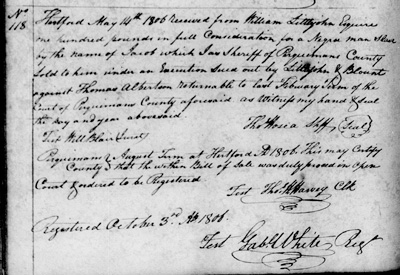 No
118
Hertford May 14th 1806 received from William Littlejohn Esquire
one hundred pounds in full Consideration for a Negroe man Slave
by the name of Jacob which I as Sheriff of Perquimans County
Sold to them under an Execution Sued out by Littlejohn & Blount
against Thomas Albertson returnable to last February Term of the
Court of Perquimans County aforesaid as Witness my hand & Seal
the day and year abovesaid
Thos Hosea Shff (Seal)
Test Will Blair Jurat
Perquimans August Term at Hertford AD 1806. This may Certify
County that the within Bill of Sale was duly proved in Open
Court & ordered to be Registered
Test Thos H Harvey Clk
Registered October 3rd AD 1806
Test Gabl White Regr